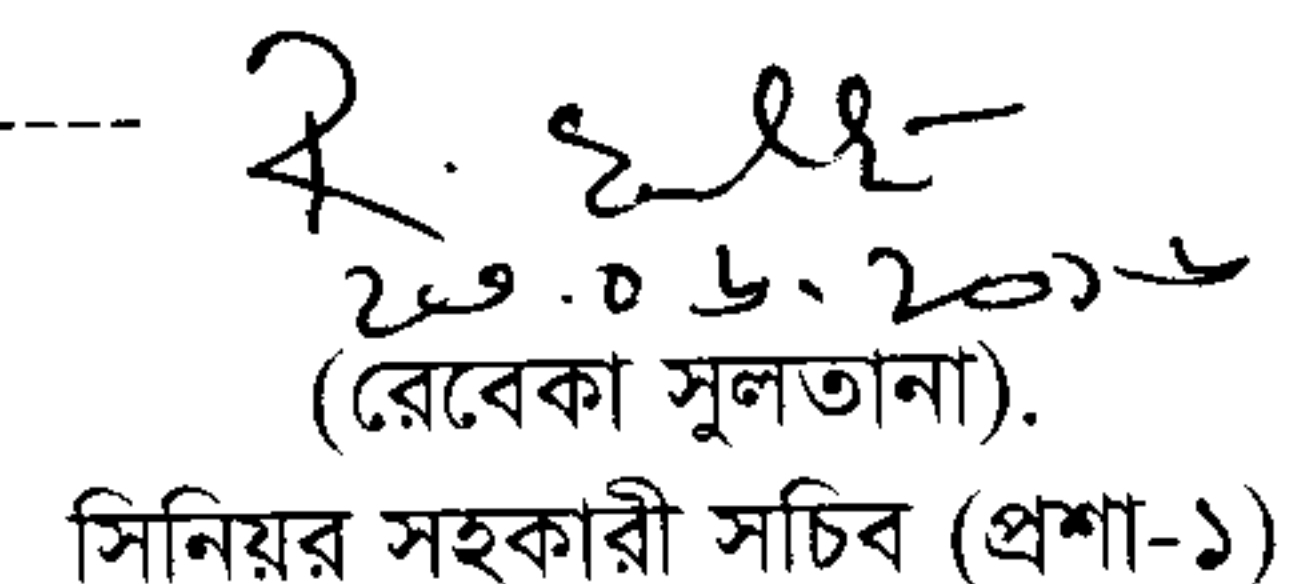 ২৩.০৬.২০১৬
(রেবেকা সুলতানা).
সিনিয়র সহকারী সচিব (প্রশা-১)